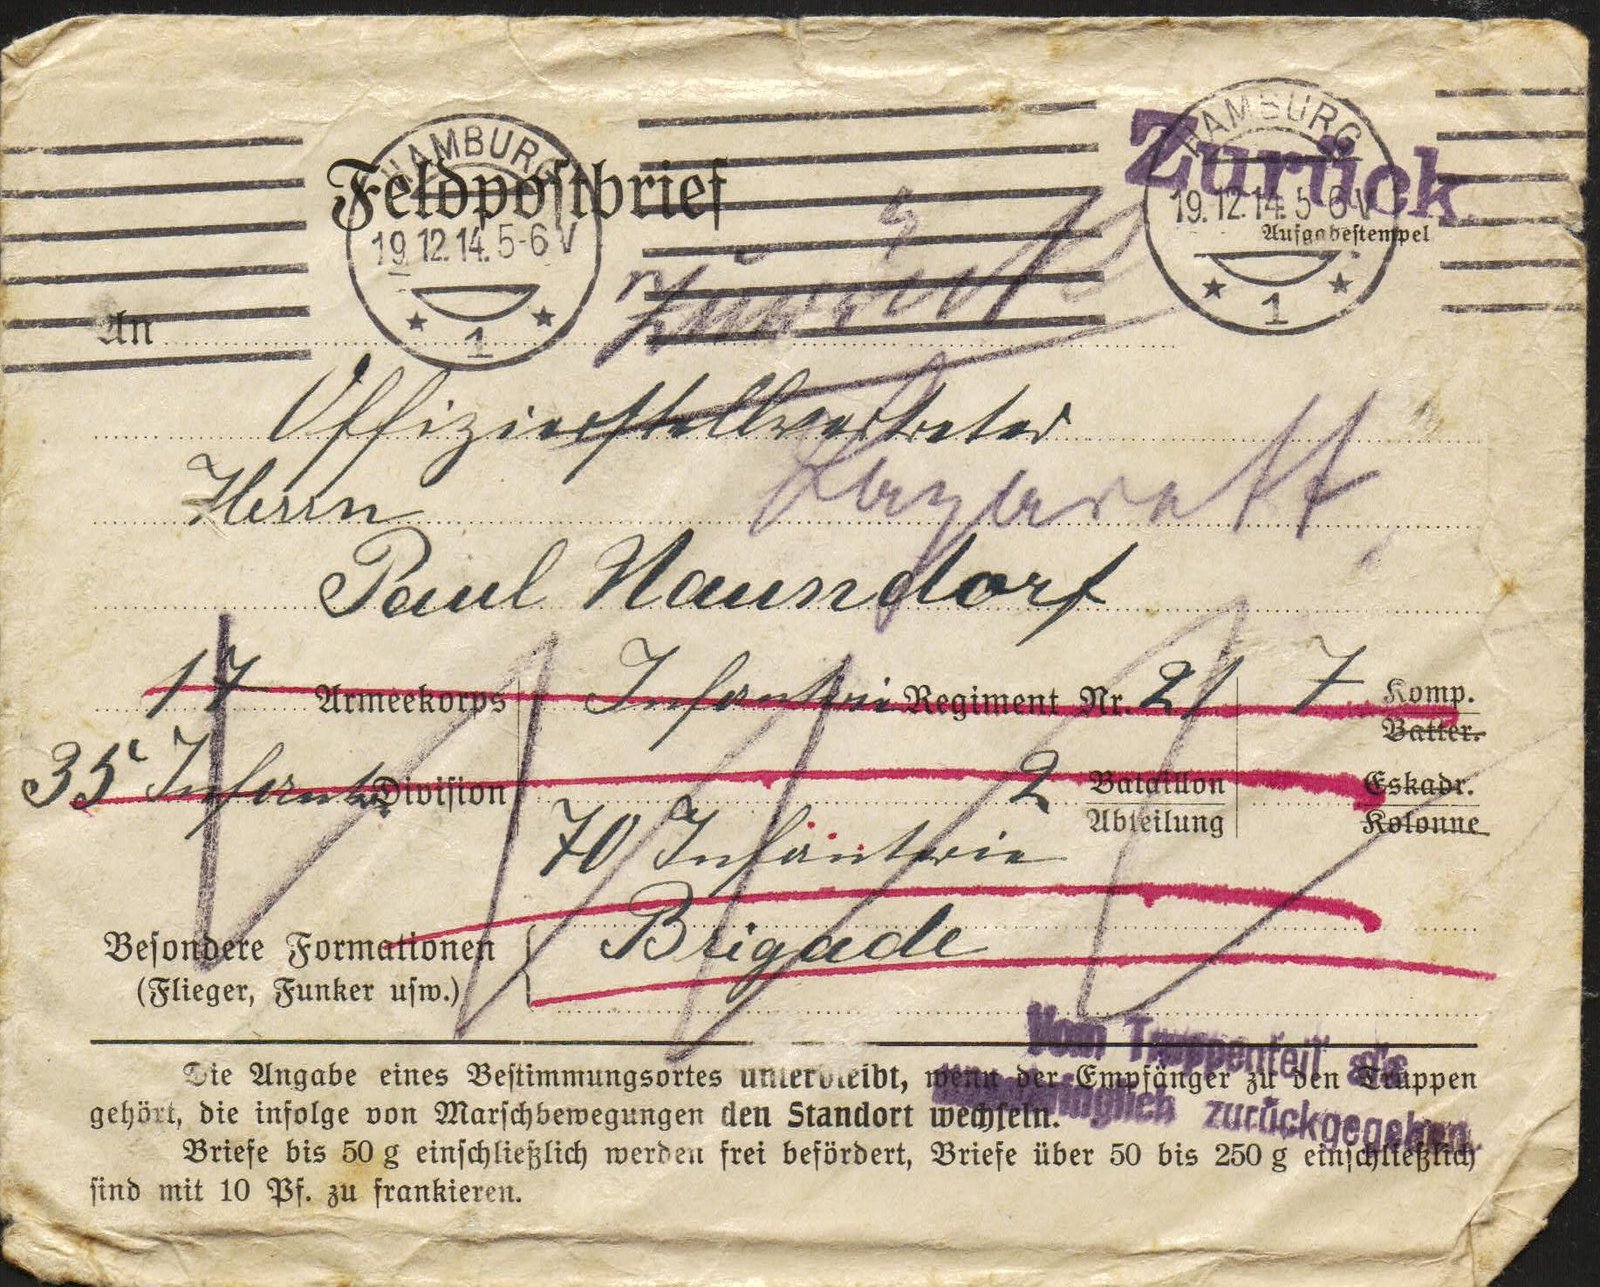 HAMBURG
19.12.14. 5-6 V
1
HAMBURG
19.12.14. 5-6 V
1
Zurück
Feldpostbrief
Aufgabestempel
Zurück
An
Offizierstellvertreter
Lazarett
Herrn
Paul Naundorf
17 Armeekorps Infantrie Regiment Nr. 21 7 Komp.
Batter.
35 Infantr. Division 2 Bataillon Eskadr.
Abteilung Kolonne
70 Infanterie
Brigade
Besondere Formationen
(Flieger, Funker usw.)
Vom Truppenteil als
zurückgegeben
Die Angabe eines Bestimmungsortes unterbleibt, wenn der Empfänger zu den Truppen
gehört, die infolge von Marschbewegungen den Standort wechseln.
Briefe bis 50 g einschließlich werden frei befördert, Briefe über 50 bis 250 g einschließlich
sind mit 10 Pf. zu frankieren.